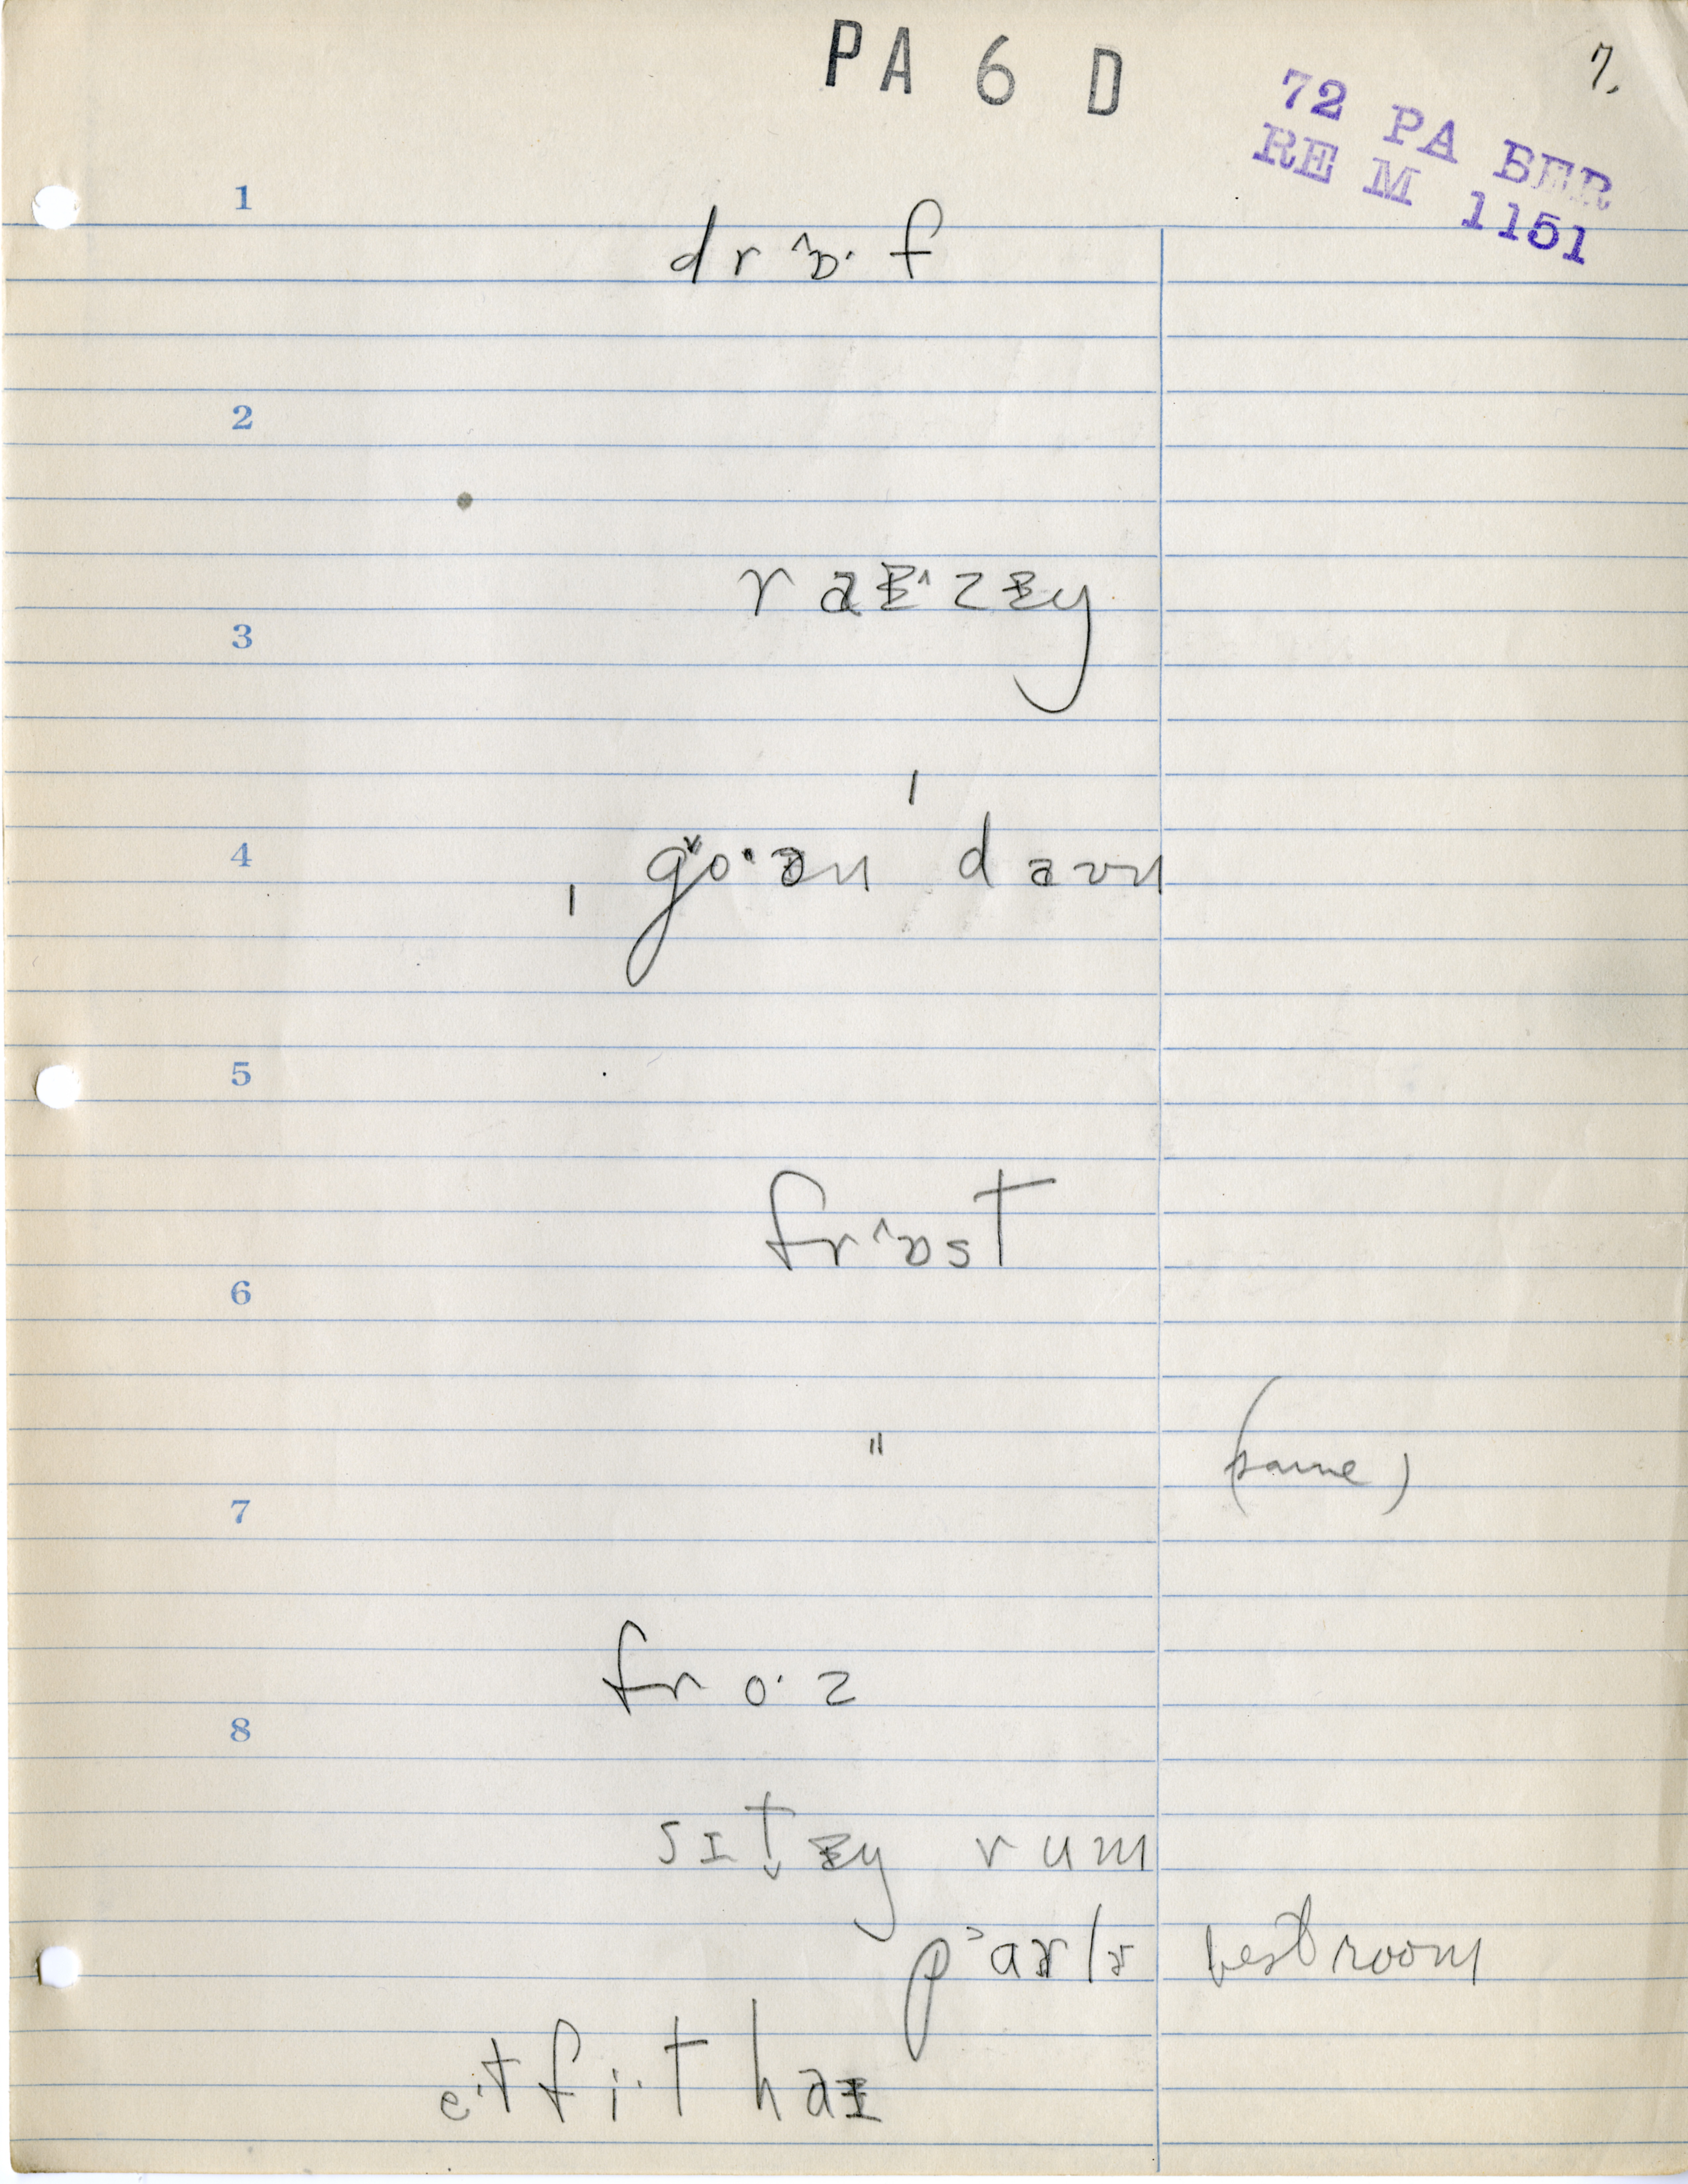 PA 6 D
7.
72 PA BER
RE M 1151
1
drɒ˄·f
2
raɪ˄·zɪŋ
3
4
ˌgo˅·ən ˈdaʊn
5
frɒ˄st
6
" (same)
7
fro·z
8
sɪt̬ɪŋ rum
p˃aɚlɚ best room
e·t fi·t haɪ